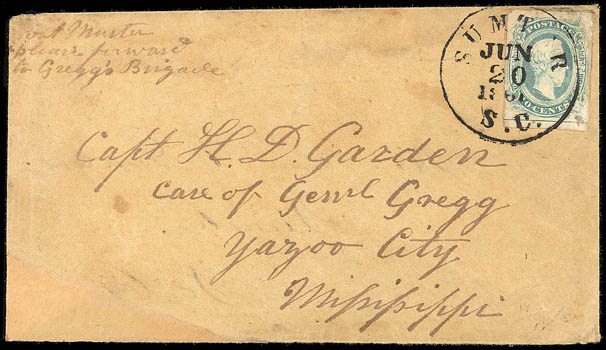 Post Master
please forward
to Gregg's Brigade
SUMTER
JUN
20
S.C.
POSTAGE
CENTS
Capt H. D. Garden
Care of Genrl Gregg
Yazoo City
Missisippi